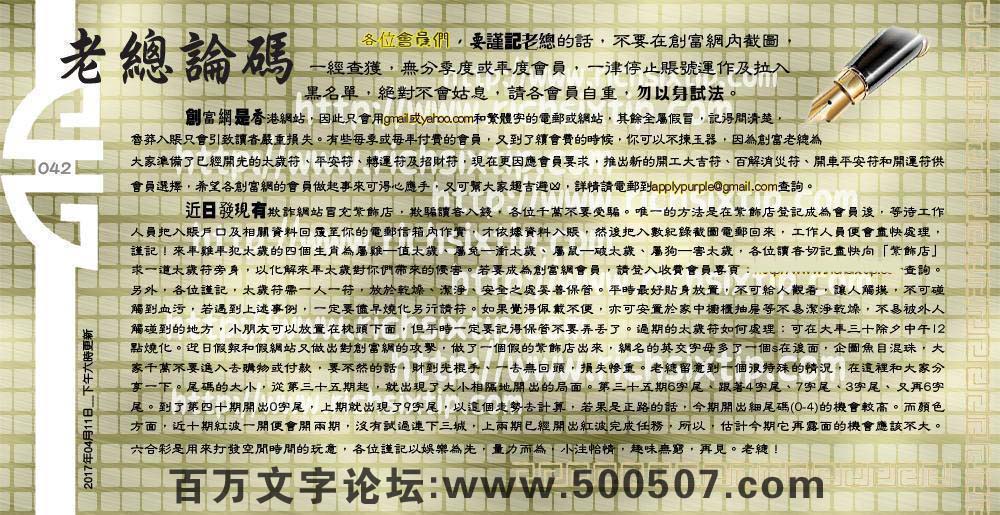 老總論碼
各位會員們，要謹記老總的話，不要在創富網內截圖，
一經查獲，無分季度或年度會員，一律停止賬號運作及拉入
黑名單，絕對不會姑息，請各會員自重，勿以身試法。
042
創富網是香港網站，因此只會用gmail或yahoo.com和繁體字的電郵或網站，其餘全屬假冒，記得問清楚，
魯莽入賬只會引致讀者嚴重損失。有些每季或每年付費的會員，又到了續會費的時候，你可以不揀玉器，因為創富老總為
大家準備了已經開先的太歲符、平安符、轉運符及招財符，現在更因應會員要求，推出新的開工大吉符、百解消災符、開車平安符和開運符供
會員選擇，希望各創富網的會員做起事來可得心應手，又可幫大家趨吉避凶，詳情請電郵到applypurple@gmail.com查詢。
近日發現有欺詐網站冒充紫飾店，欺騙讀者入錢，各位千萬不要受騙。唯一的方法是在紫飾店登記成為會員後，等待工作
人員把入賬戶口及相關資料回覆至你的電郵信箱內作實，才依據資料入賬，然後把入數紀錄截圖電郵回來，工作人員便會盡快處理，
謹記！來年雞年犯太歲的四個生肖為屬雞—值太歲、屬兔—衝太歲、屬鼠—破太歲、屬狗—害太歲，各位讀者切記盡快向「紫飾店」
求一道太歲符旁身，以化解來年太歲對你們帶來的侵害。若要成為創富網會員，請登入收費會員專頁，查詢。
另外，各位謹記，太歲符需一人一符，放於乾燥、潔淨、安全之處妥善保管。平時最好貼身放置，不可給人觀看、讓人觸摸，不可碰
觸到血污，若遇到上述事例，一定要儘早燒化另行請符。如果覺得佩戴不便，亦可安置於家中櫥櫃抽屜等不易潔淨乾燥，不易被外人
觸碰到的地方，小朋友可以放置在枕頭下面，平時一定要記得保管不要弄丟了。過期的太歲符如何處理：可在大年三十除夕中午12
點燒化。近日假報和假網站又做出對創富網的攻擊，做了一個假的紫飾店出來，網名的英文字母多了一個s在後面，企圖魚目混珠，大
家千萬不要進入去購物或付款，要不然的話，財到光棍手，一去無回頭，損失慘重。老總留意到一個很特殊的情況，在這裡和大家分
享一下。尾碼的大小，從第三十五期起，就出現了大小相隔地開出的局面。第三十五期6字尾，跟著4字尾、7字尾、3字尾、又再6字
尾。到了第四十期開出0字尾，上期就出現了9字尾，以這個走勢去計算，若果是正路的話，今期開出細尾碼(0-4)的機會較高。而顏色
方面，近十期紅波一開便會開兩期，沒有試過連下三城，上兩期已經開出紅波完成任務，所以，估計今期它再露面的機會應該不大。
六合彩是用來打發空閒時間的玩意，各位謹記以娛樂為先，量力而為，小注怡情，趣味無窮，再見。老總！
2017年04月11日__下午六時更新
http://www.richsixtip.com
百万文字论坛:www.500507.com